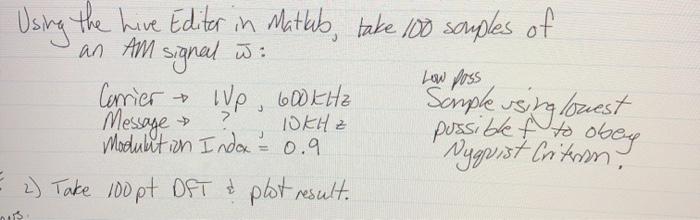 Using the Live Editor in Matlab, take 100 samples of
an AM signal w̄:
Carrier → 1Vp, 600KHz
Message → ?, 10KHz
Modulation Index = 0.9
Low Pass
Sample using lowest
possible f to obey
Nyquist Criterion.
2) Take 100pt DFT & plot result.